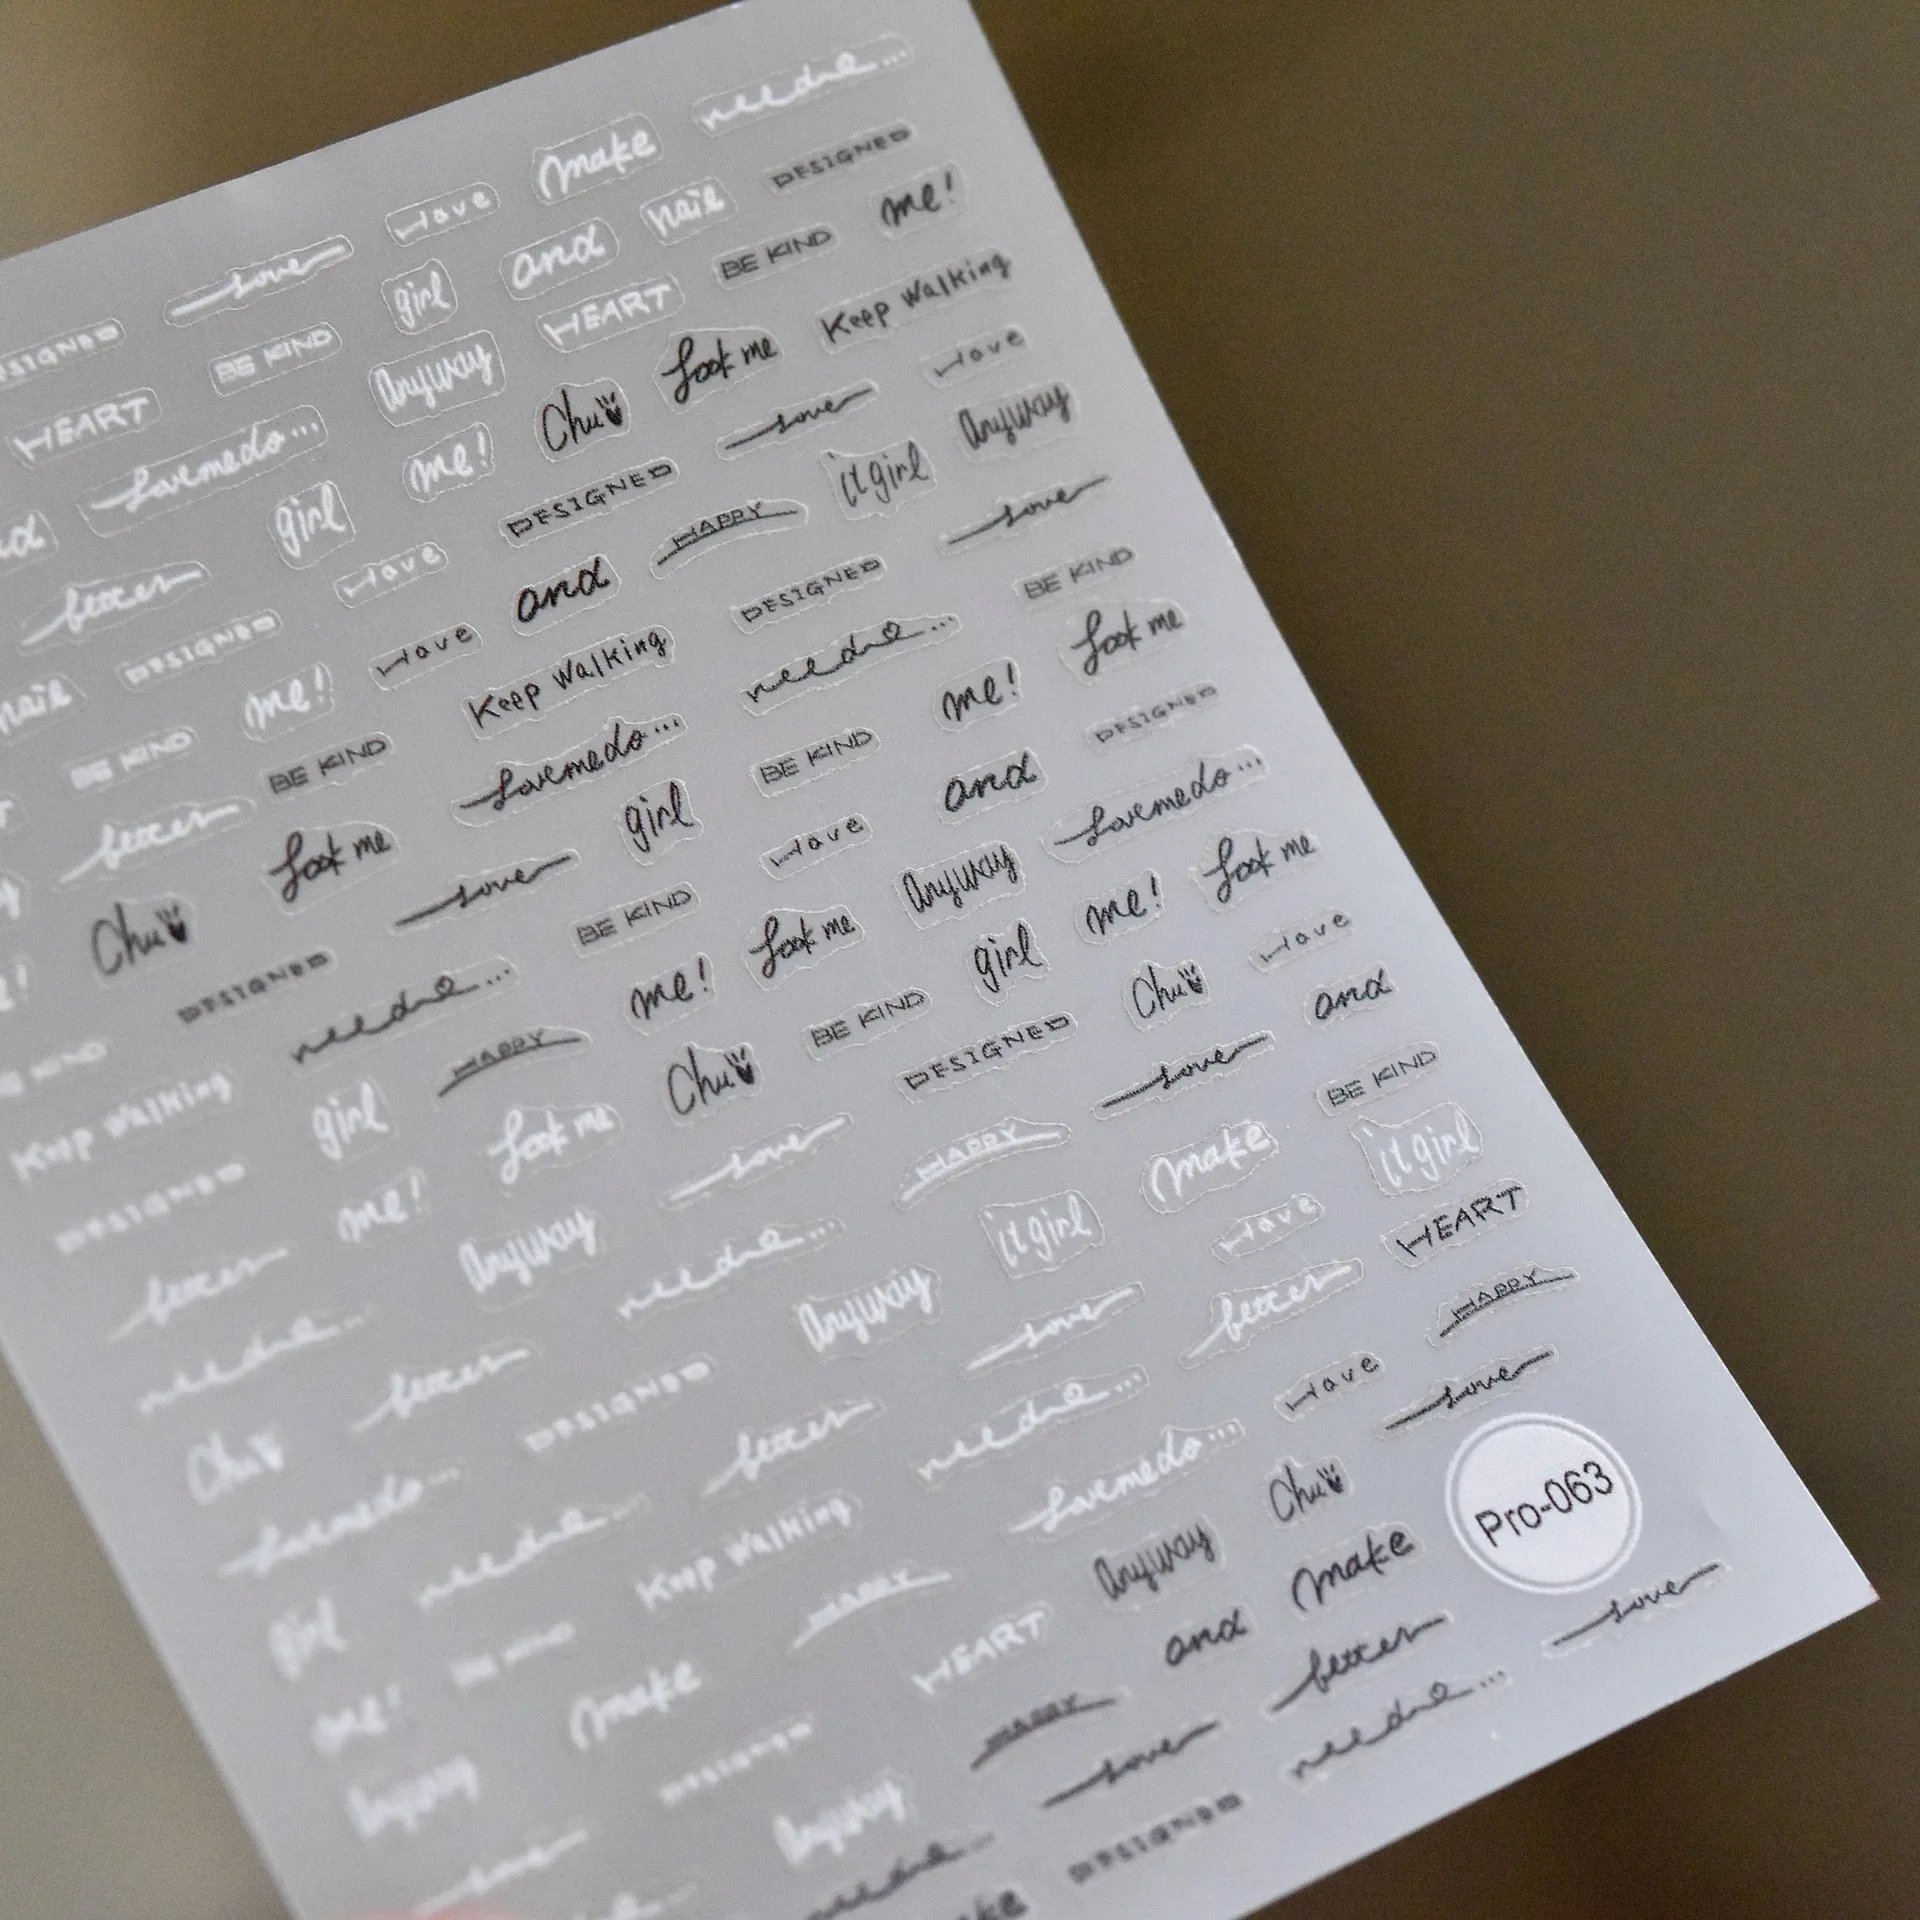 needme...
make
Have
Lover
DESIGNED
nail
and
girl
BE KIND
me!
BE KIND
HEART
Anyway
HEART
Keep Walking
Look me
Chu
me!
Lovemedo...
Have
Lover
DESIGNED
girl
Anyway
it girl
HAPPY
and
Have
better
Lover
DESIGNED
Keep Walking
Have
me!
DESIGNED
nail
BE KIND
Look me
needme...
Lovemedo...
BE KIND
BE KIND
better
me!
BE KIND
girl
Lover
Look me
Chu
DESIGNED
and
Have
BE KIND
needme...
DESIGNED
Lovemedo...
Anyway
Look me
me!
HAPPY
girl
Keep Walking
Look me
me!
girl
BE KIND
Chu
Look me
me!
DESIGNED
Have
Chu
DESIGNED
Lover
Anyway
better
and
Lover
HAPPY
needme...
needme...
BE KIND
make
it girl
Anyway
better
Chu
it girl
Have
Lover
DESIGNED
Lovemedo...
HEART
better
needme...
better
needme...
girl
HAPPY
Have
Lovemedo...
Keep Walking
BE KIND
me!
Lover
Chu
Anyway
HAPPY
make
Anyway
Pro-063
make
and
HEART
DESIGNED
Lover
better
HAPPY
Anyway
Lover
needme...
Lover
needme...
DESIGNED